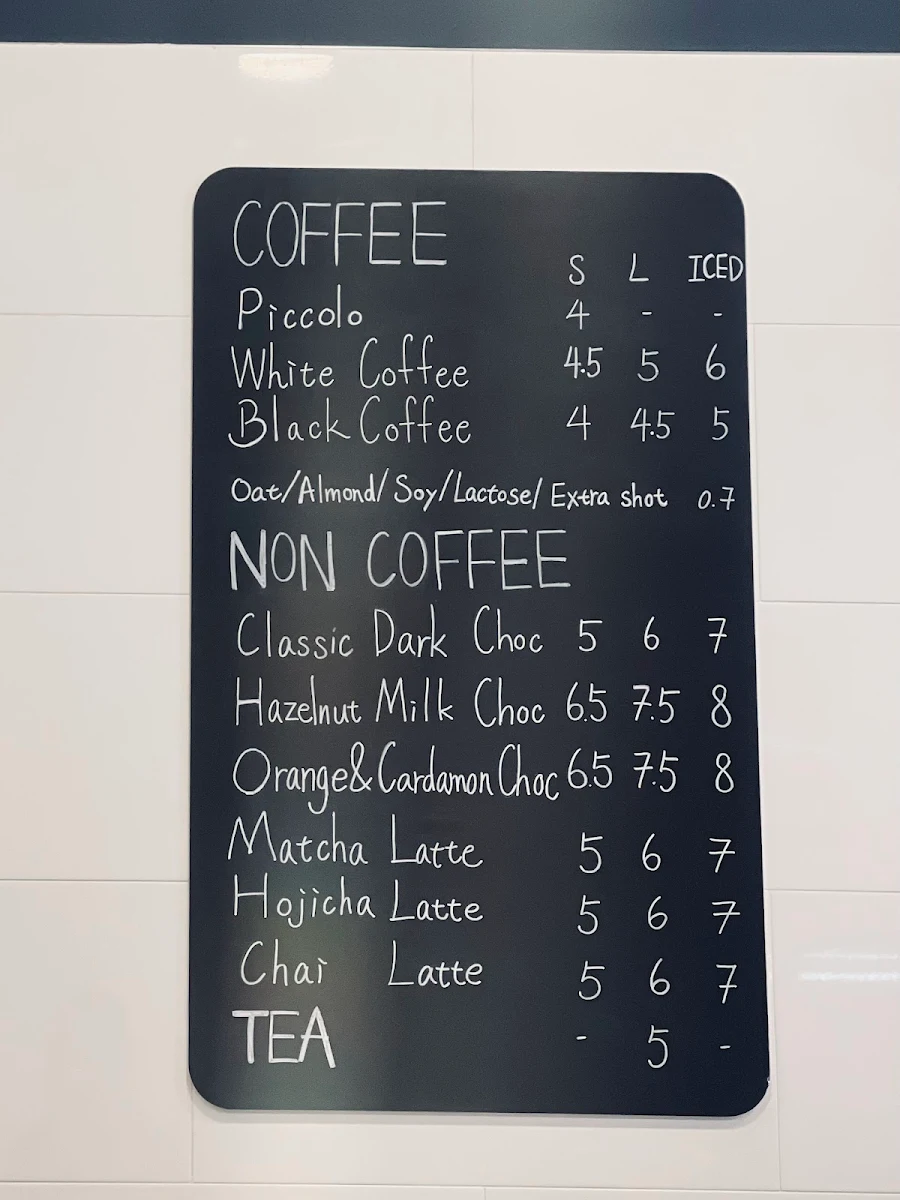 COFFEE
S L ICED
Piccolo 4 - -
White Coffee 4.5 5 6
Black Coffee 4 4.5 5
Oat/Almond/Soy/Lactose/Extra shot 0.7
NON COFFEE
Classic Dark Choc 5 6 7
Hazelnut Milk Choc 6.5 7.5 8
Orange&Cardamon Choc 6.5 7.5 8
Matcha Latte 5 6 7
Hojicha Latte 5 6 7
Chai Latte 5 6 7
TEA - 5 -